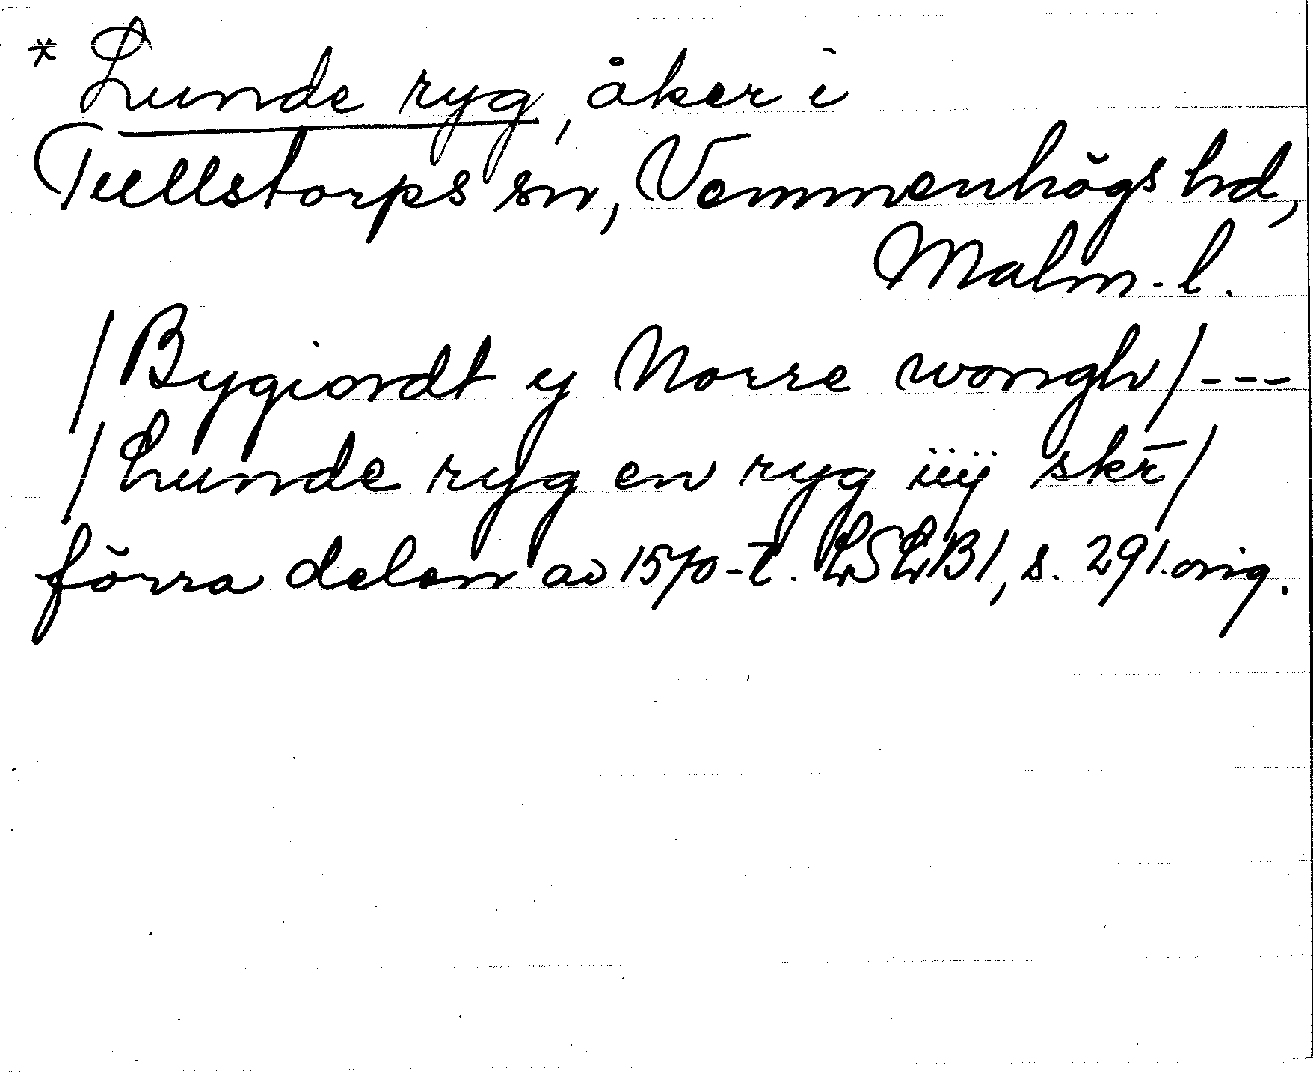 * Lunde ryg, åker i
Tullstorps sn, Vemmenhögs hd,
Malm.l.
/Bygiordt y Norre wongh/---
/Lunde ryg en ryg iiij skr̄/
förra delen av 1570-t. LSLB1, s. 291. orig.